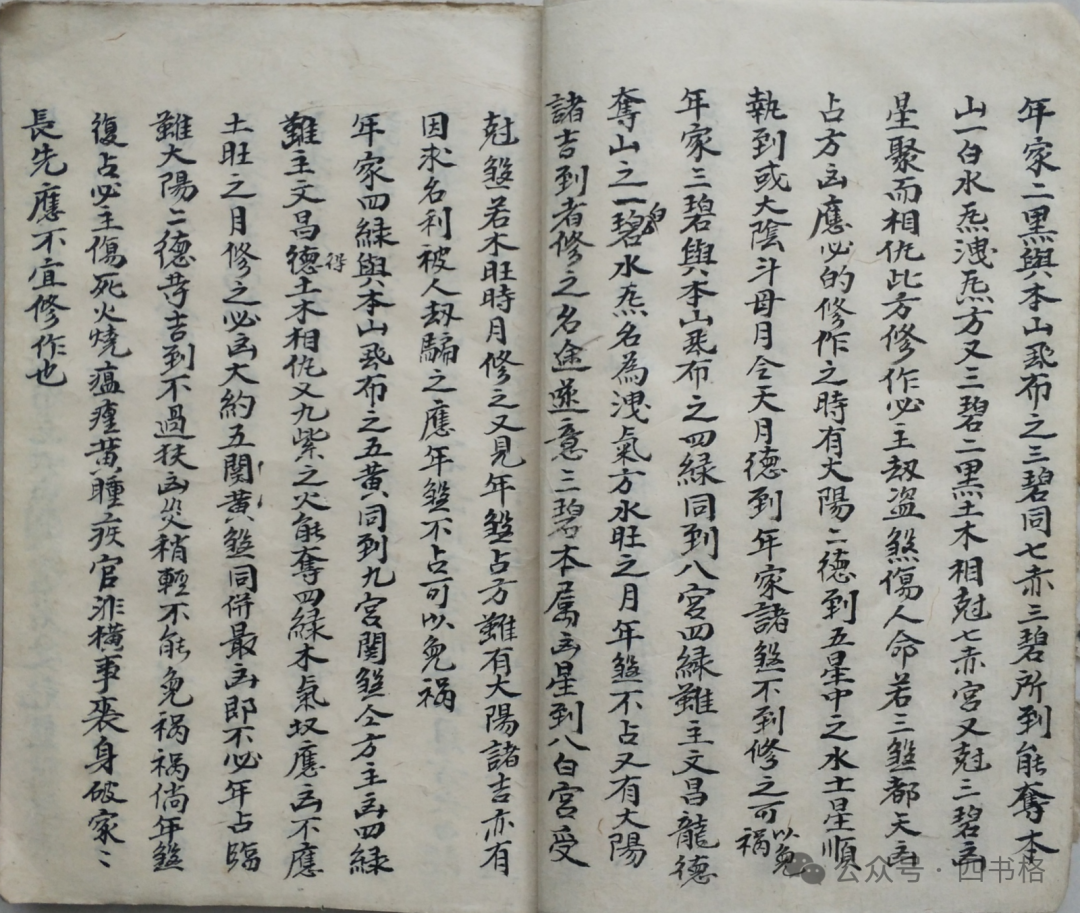 年家二黑與本山飛布之三碧同七赤三碧所到能奪本
山一白水炁洩炁方又三碧二黑土木相尅七赤宮又尅三碧啇
星聚而相仇此方修作必主刼盗煞傷人命若三煞都天凶
占方凶應必的修作之時有太陽二德到五星中之水土星順
執到或太陰斗母月令天月德到年家諸煞不到修之可以免禍
年家三碧與本山飛布之四緑同到八宮四緑雖主文昌龍德
奪山之一白水炁名為洩氣方水旺之月年煞不占又有太陽
諸吉到者修之名途遂意三碧本属凶星到八白宮受
尅煞若木旺時月修之又見年煞占方雖有大陽諸吉亦有
因求名利被人刼騙之應年煞不占可以免禍
年家四緑與本山飛布之五黄同到九宮関煞仝方主凶四緑
雖主文昌得德土木相仇又九紫之火能奪四緑木氣故應凶不應
土旺之月修之必凶大約五関黄煞同併最凶即不必年占臨
雖大陽二德等吉到不過扶凶災稍輕不能免禍禍倘年煞
復占必主傷死火燒瘟㾏黄腫疾官非横事喪身破家〻
長先應不宜修作也
公众号·四书格